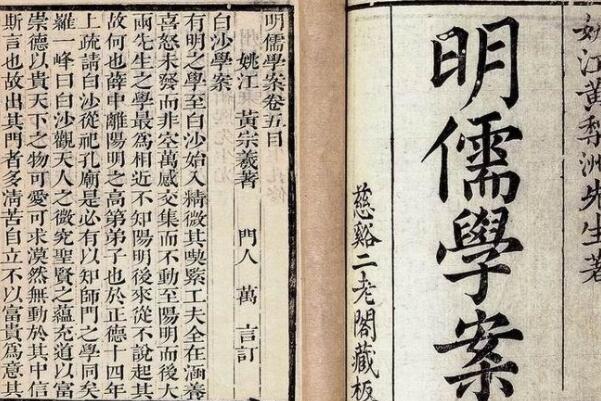 姚江黃梨洲先生著
明儒學案
慈谿二老閣藏板
明儒學案卷五目
姚江 黃宗羲著 門人 萬 言訂
白沙學案
有明之學至白沙始入精微其喫緊工夫全在涵養
喜怒未發而非空萬感交集而不動至陽明而後大
兩先生之學最為相近不知陽明後來從不說起其
故何也薛中離陽明之高第弟子也於正德十四年
上疏請白沙從祀孔廟是必有以知師門之學同矣
羅一峰曰白沙觀天人之微究聖賢之蘊充道以富
崇德以貴天下之物可愛可求漠然無動於其中信
斯言也故出其門者多清苦自立不以富貴為意其